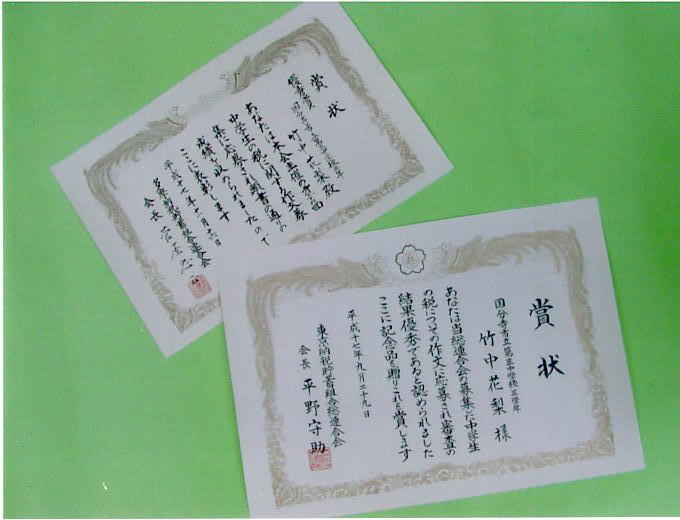 賞状
国分寺市立第三中学校三学年
竹中花梨様
あなたは当総連合会の募集した中学生
の税についての作文に応募され審査の
結果優秀であると認められました
ここに記念品を贈りこれを賞します
平成十七年九月二十九日
東京納税貯蓄組合総連合会
会長 平野守助
賞状
優秀賞
竹中花梨殿
あなたは本会主催の
中学生の税に関する作文募
集に応募され頭書の通りの
成績を収められましたので
ここに表彰します
平成十七年
会長